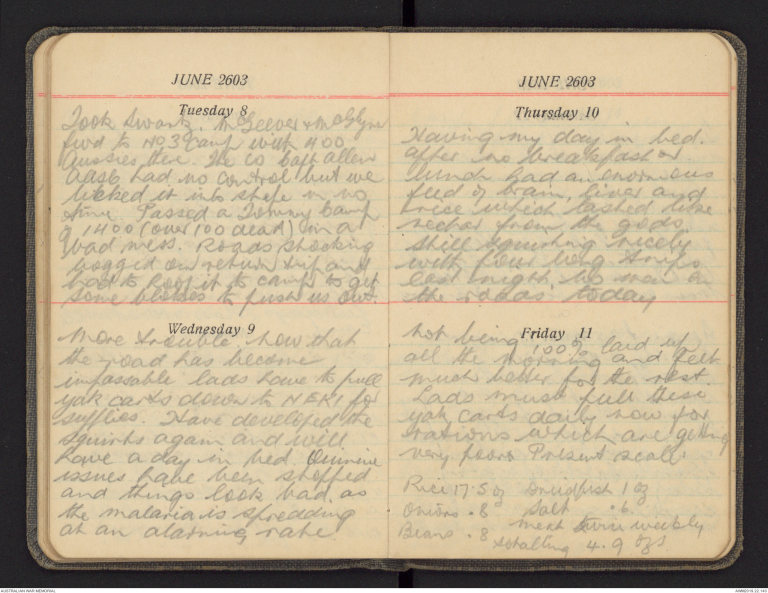 JUNE 2603
Tuesday 8
Took Swartz, McGeever & McGlynn
fwd to No 3 Camp with 400
Aussies there. The CO Capt Allen
AASC had no control but we
licked it into shape in no
time. Passed a Tommy Camp
of 1400 (over 100 dead) in a
bad mess. Roads shocking
bogged on return trip and
had to hoof it to camp to get
some blokes to push us out
Wednesday 9
More trouble, now that
the road has become
impassable lads have to pull
yak carts down to NEKI for
supplies. Have developed the
squirts again and will
have a day in bed. Quinine
issues have been stopped
and things look bad as
the malaria is spreading
at an alarming rate.
JUNE 2603
Thursday 10
Having my day in bed.
After no breakfast or
lunch had an enormous
feed of brain, liver and
rice which tasted like
nectar from the gods.
Still squirting nicely
with four long trips
last night. No men on
the roads today
Friday 11
Not being 100% laid up
all the morning and felt
much better for the rest.
Lads must pull these
yak carts daily now for
rations which are getting
very poor. Present scale
Rice 17.5 oz Driedfish 1 oz
Onions .8 Salt .6
Beans .8 Meat twice weekly
totalling 4.9 ozs
AUSTRALIAN WAR MEMORIAL
AWM2019.22.143